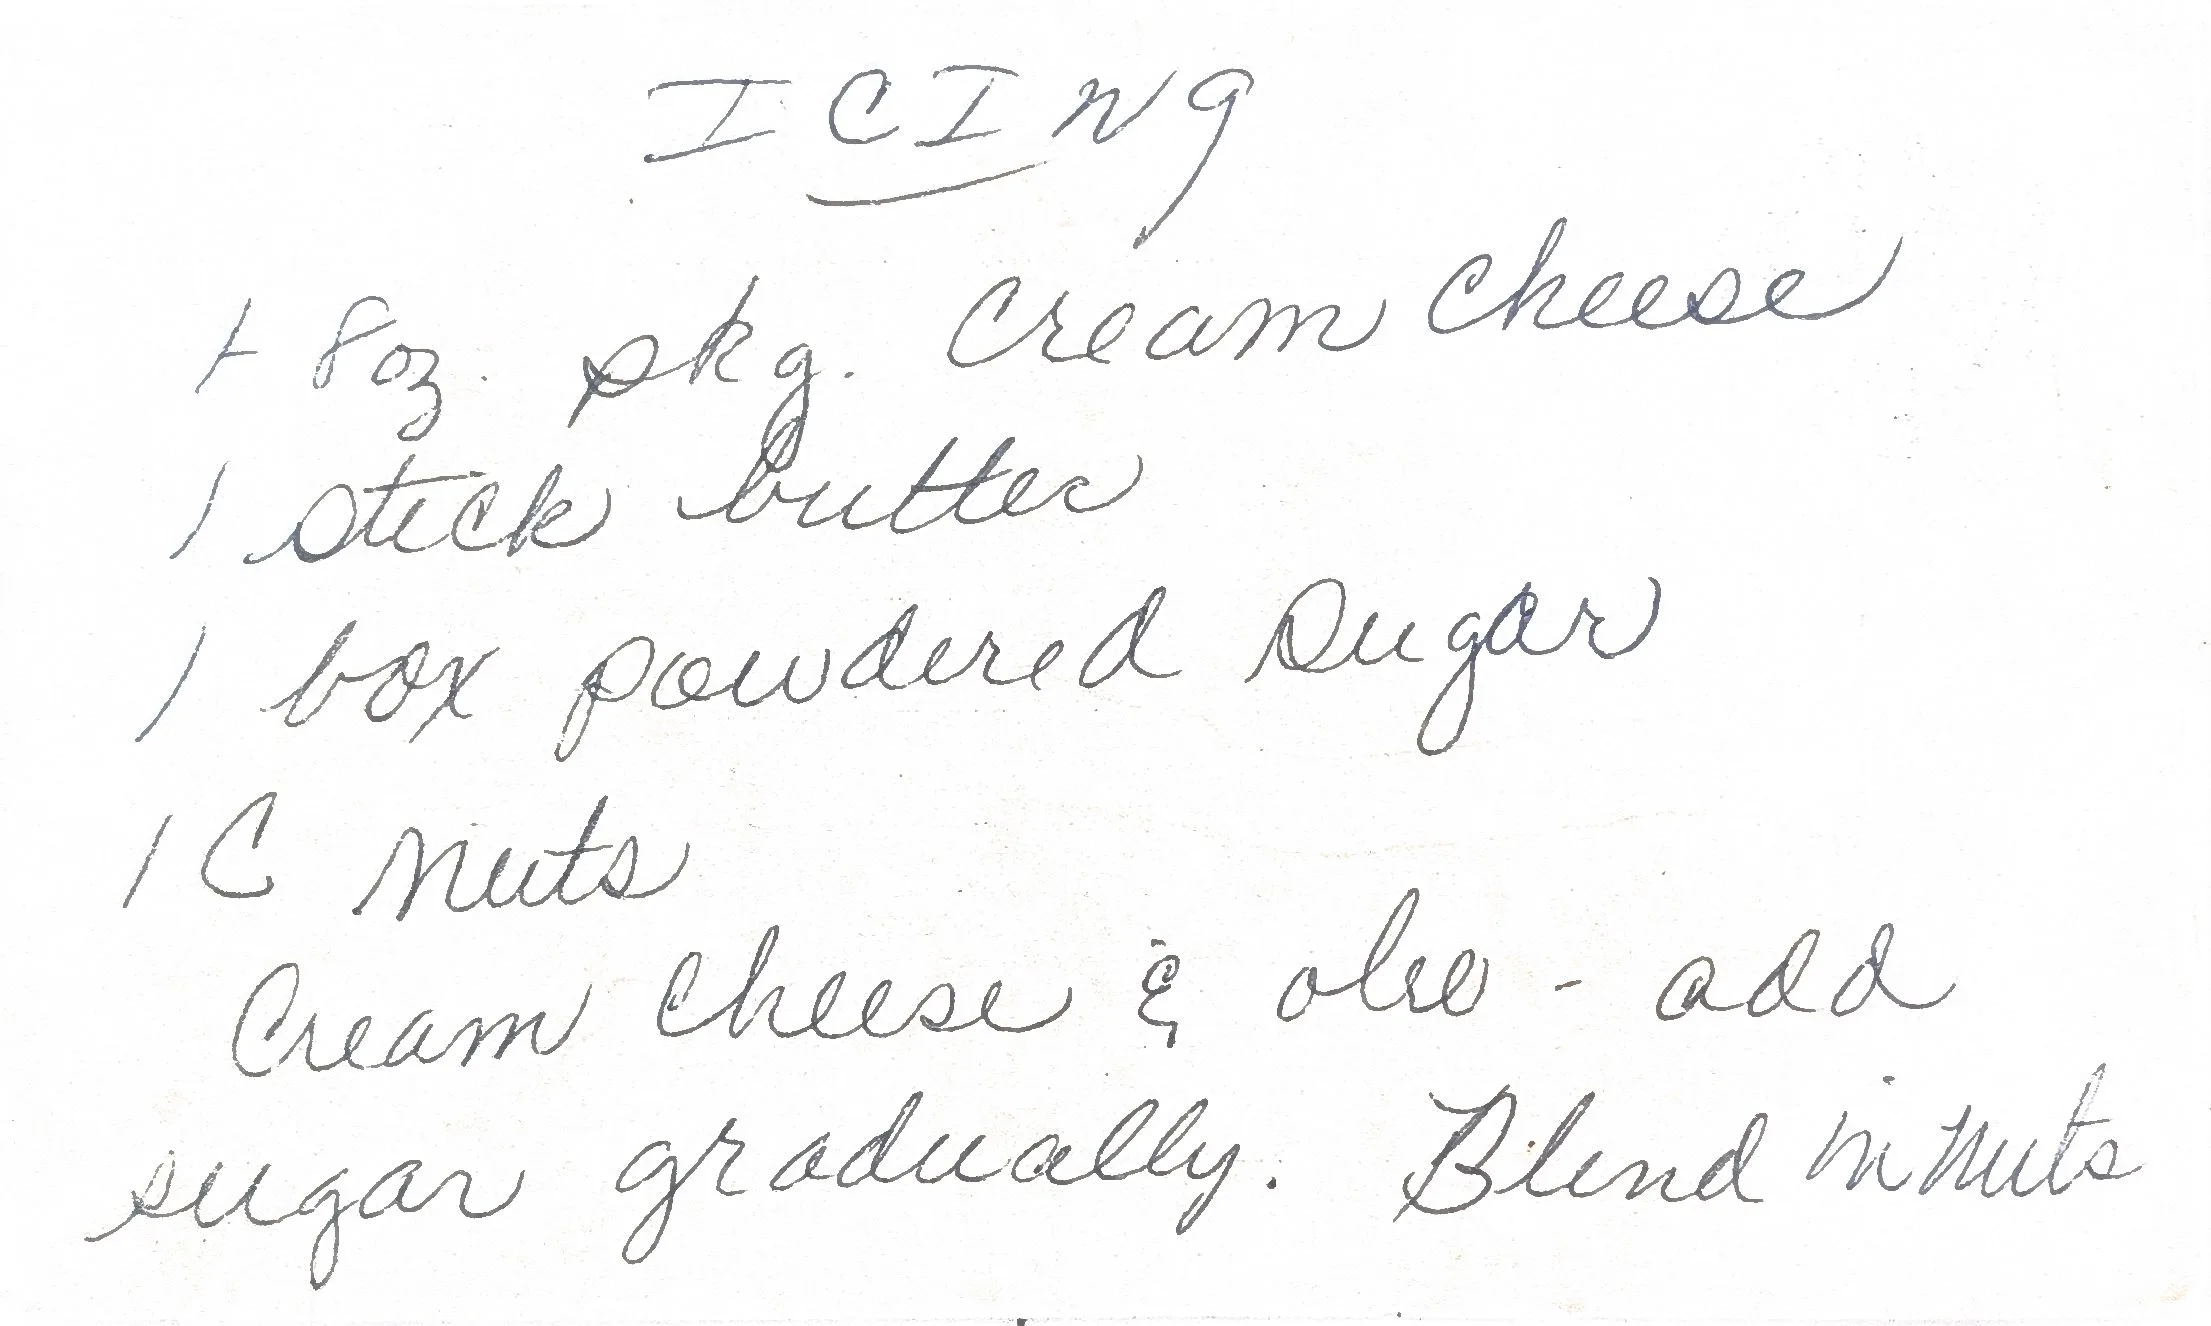 ICING
1 8 oz. pkg. Cream Cheese
1 stick butter
1 box powdered sugar
1 C nuts
Cream cheese & oleo - add
sugar gradually. Blend in nuts